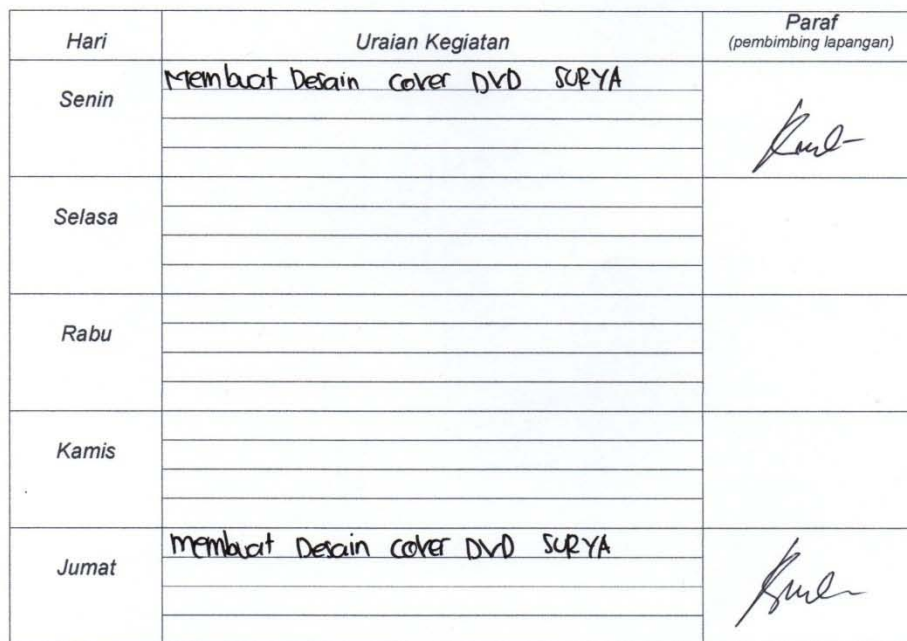 Hari Uraian Kegiatan Paraf
(pembimbing lapangan)
Senin Membuat Desain cover DVD SURYA
Selasa
Rabu
Kamis
Jumat membuat Desain cover DVD SURYA